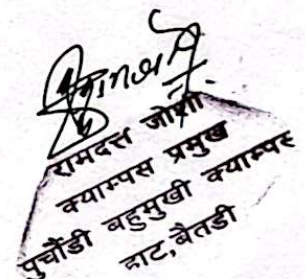 रामदत्त जोशी
क्याम्पस प्रमुख
पुर्चौंडी बहुमुखी क्याम्पस
हाट, बैतडी